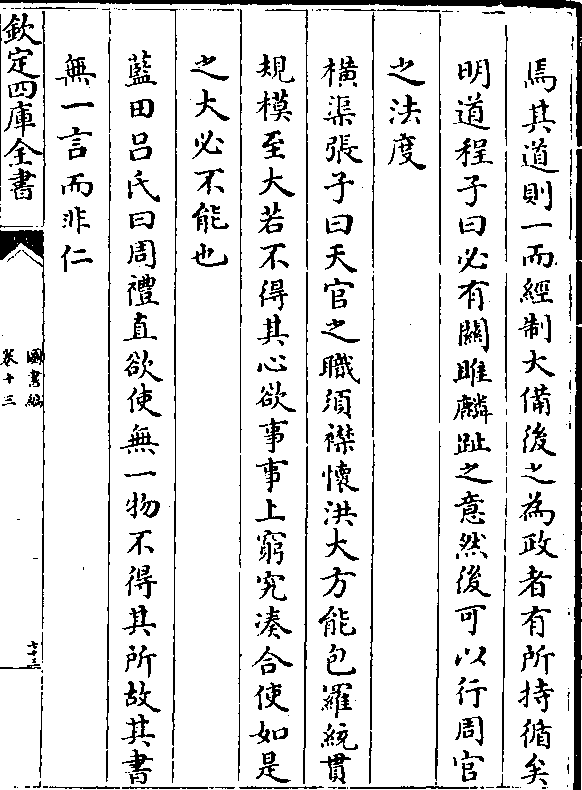 焉其道則一而經制大備後之為政者有所持循矣
明道程子曰必有關雎麟趾之意然後可以行周官
之法度
橫渠張子曰天官之職須襟懷洪大方能包羅統貫
規模至大若不得其心欲事事上窮究湊合使如是
之大必不能也
藍田呂氏曰周禮直欲使無一物不得其所故其書
無一言而非仁
欽定四庫全書
圖書編
卷十三